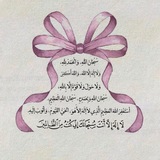 سبحان الله، والحمد لله،
ولا إله إلا الله، والله أكبر
ولا حول ولا قوة إلا بالله
سبحان الله وبحمده، سبحان الله العظيم
أستغفر الله العظيم الذي لا إله إلا هو الحي القيوم، وأتوب إليه
لا إله إلا أنت سبحانك إني كنت من الظالمين